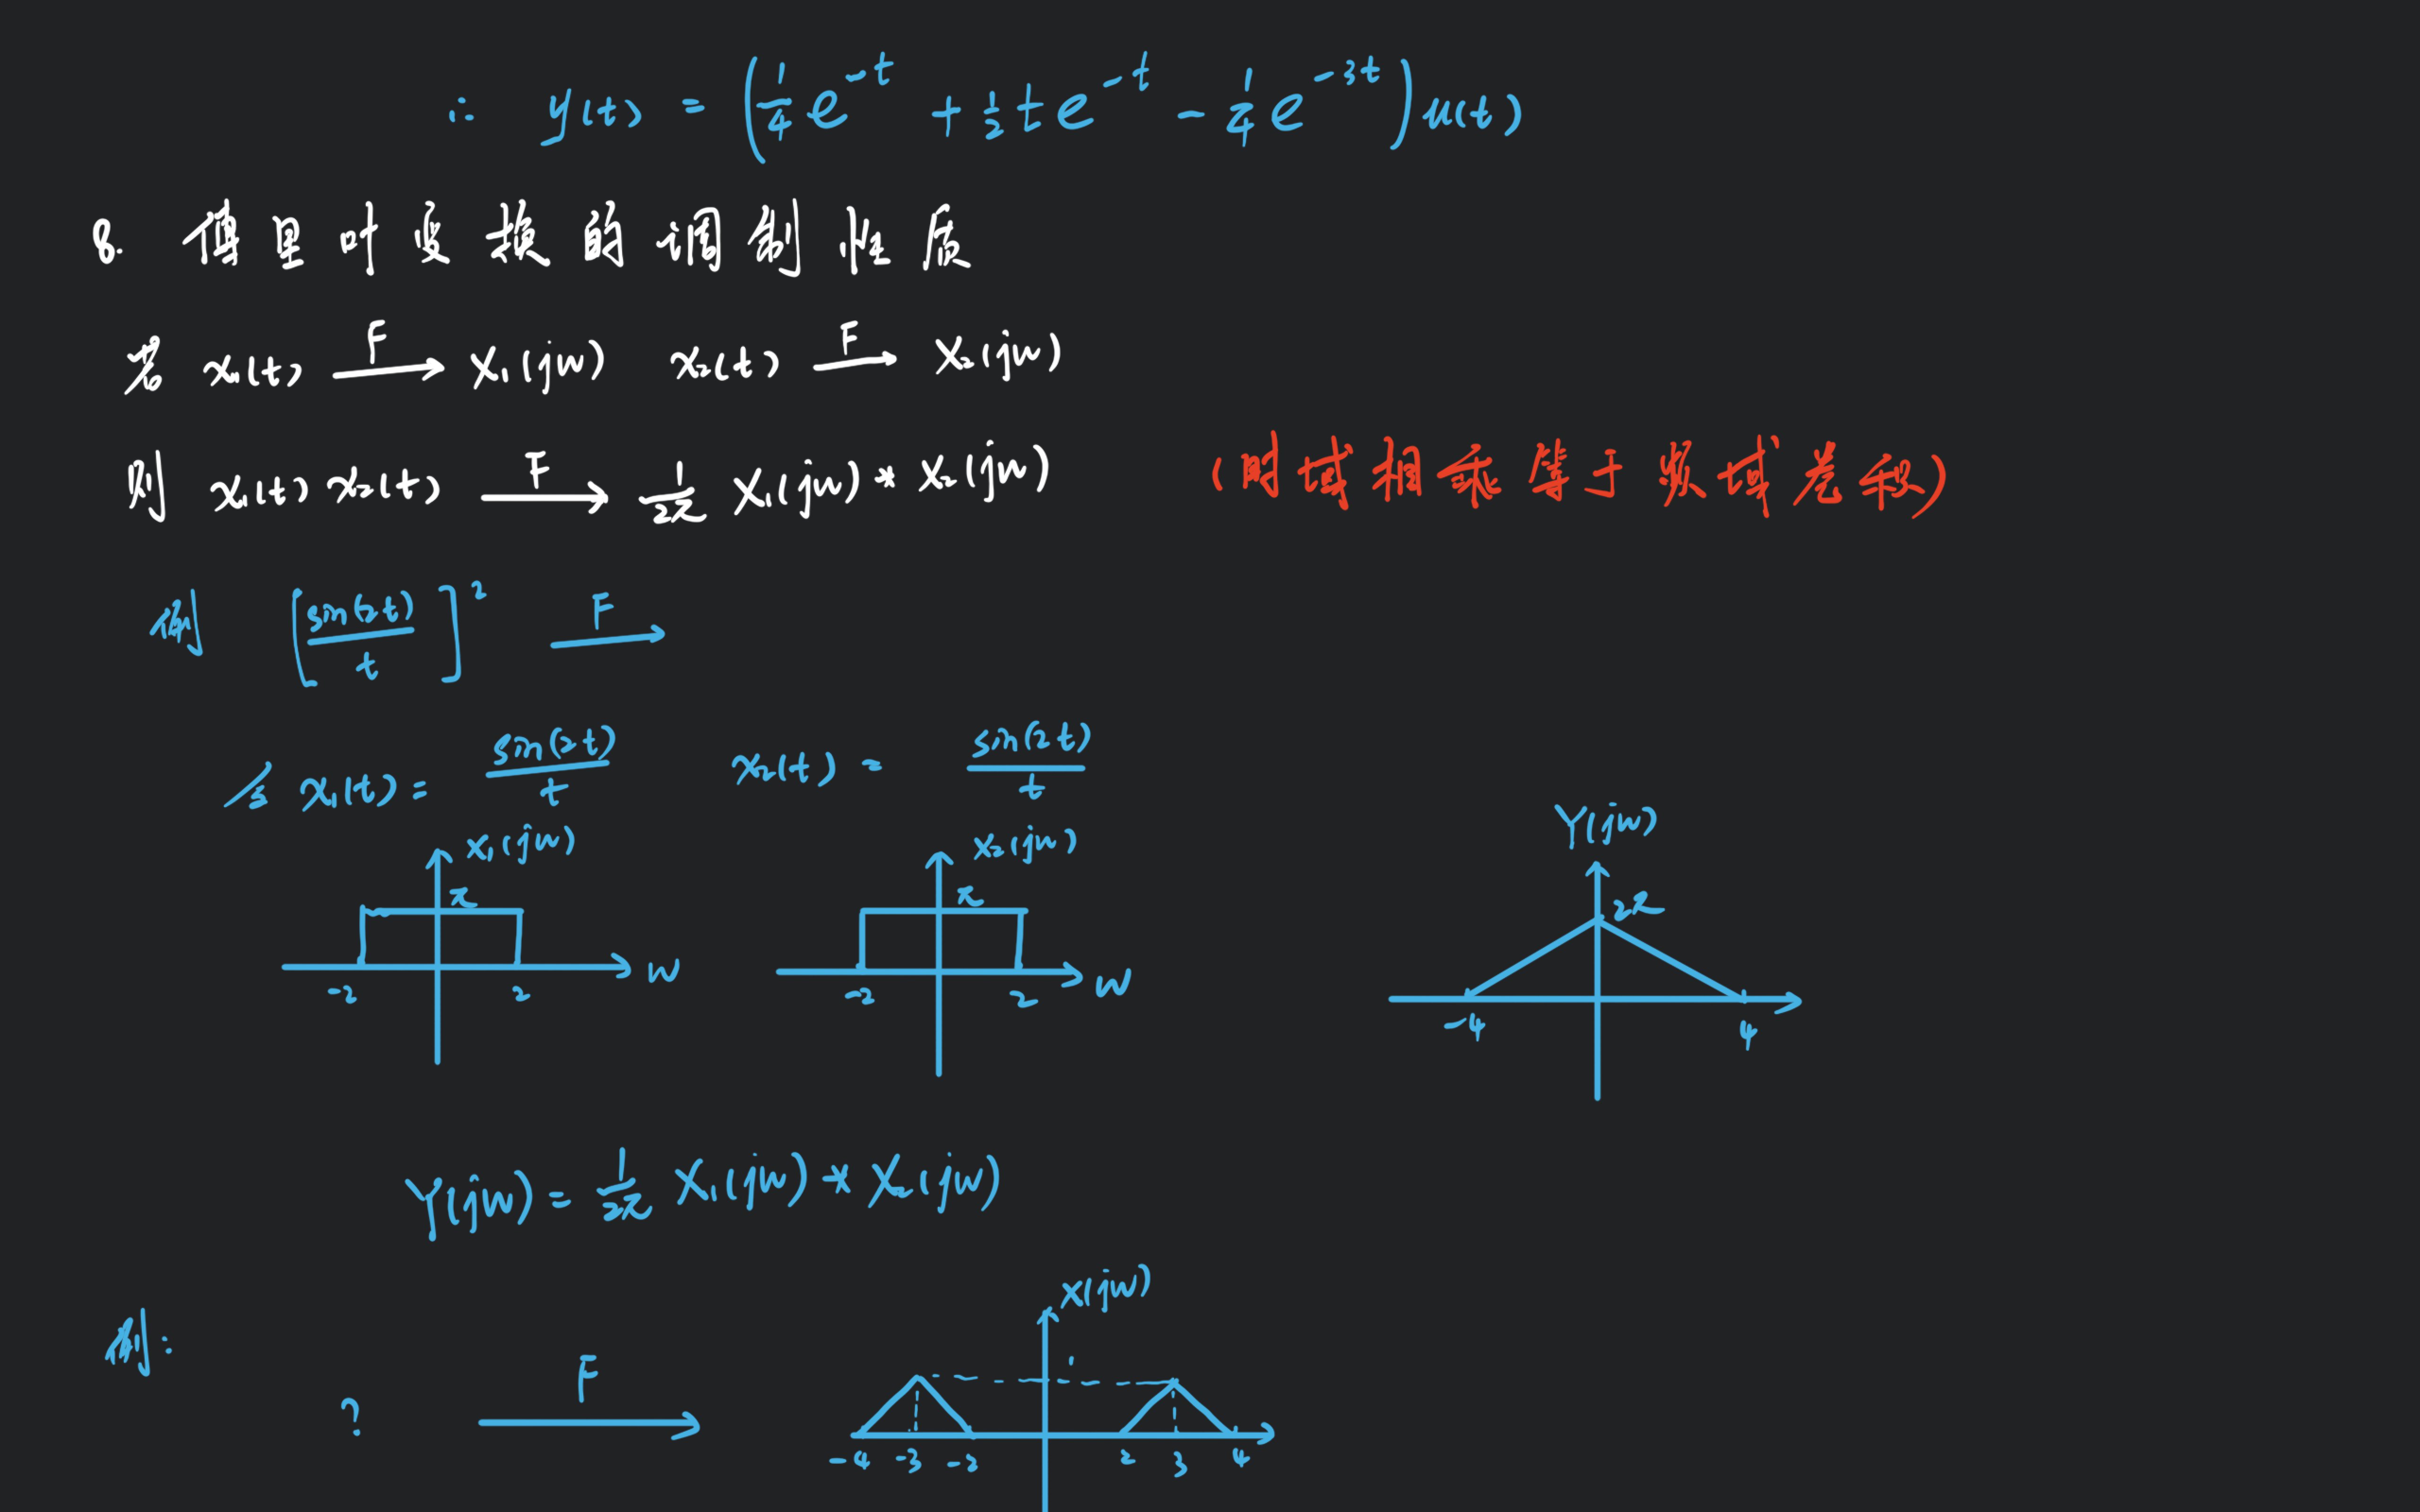 ∴ y(t) = (1/4 e^{-t} + 1/2 t e^{-t} - 1/4 e^{-3t}) u(t)
8. 傅里叶变换的调制性质
若 x₁(t) F→ X₁(jw) x₂(t) F→ X₂(jw)
则 x₁(t) x₂(t) F→ 1/2π X₁(jw) * X₂(jw) (时域相乘等于频域卷积)
例 [sin(2t)/t]² F→
令 x₁(t) = sin(2t)/t x₂(t) = sin(2t)/t
X₁(jw) X₂(jw) Y(jw)
π π 2π
-2 2 w -2 2 w -4 4
Y(jw) = 1/2π X₁(jw) * X₂(jw)
例: ? F→ X(jw)
1
-4 -3 -2 2 3 4